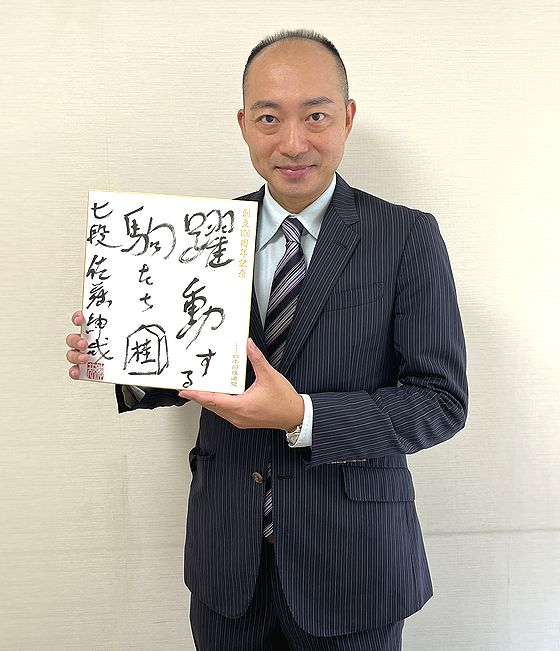 創立100周年記念
躍動する
駒たち
桂
七段 佐藤紳哉
日本将棋連盟